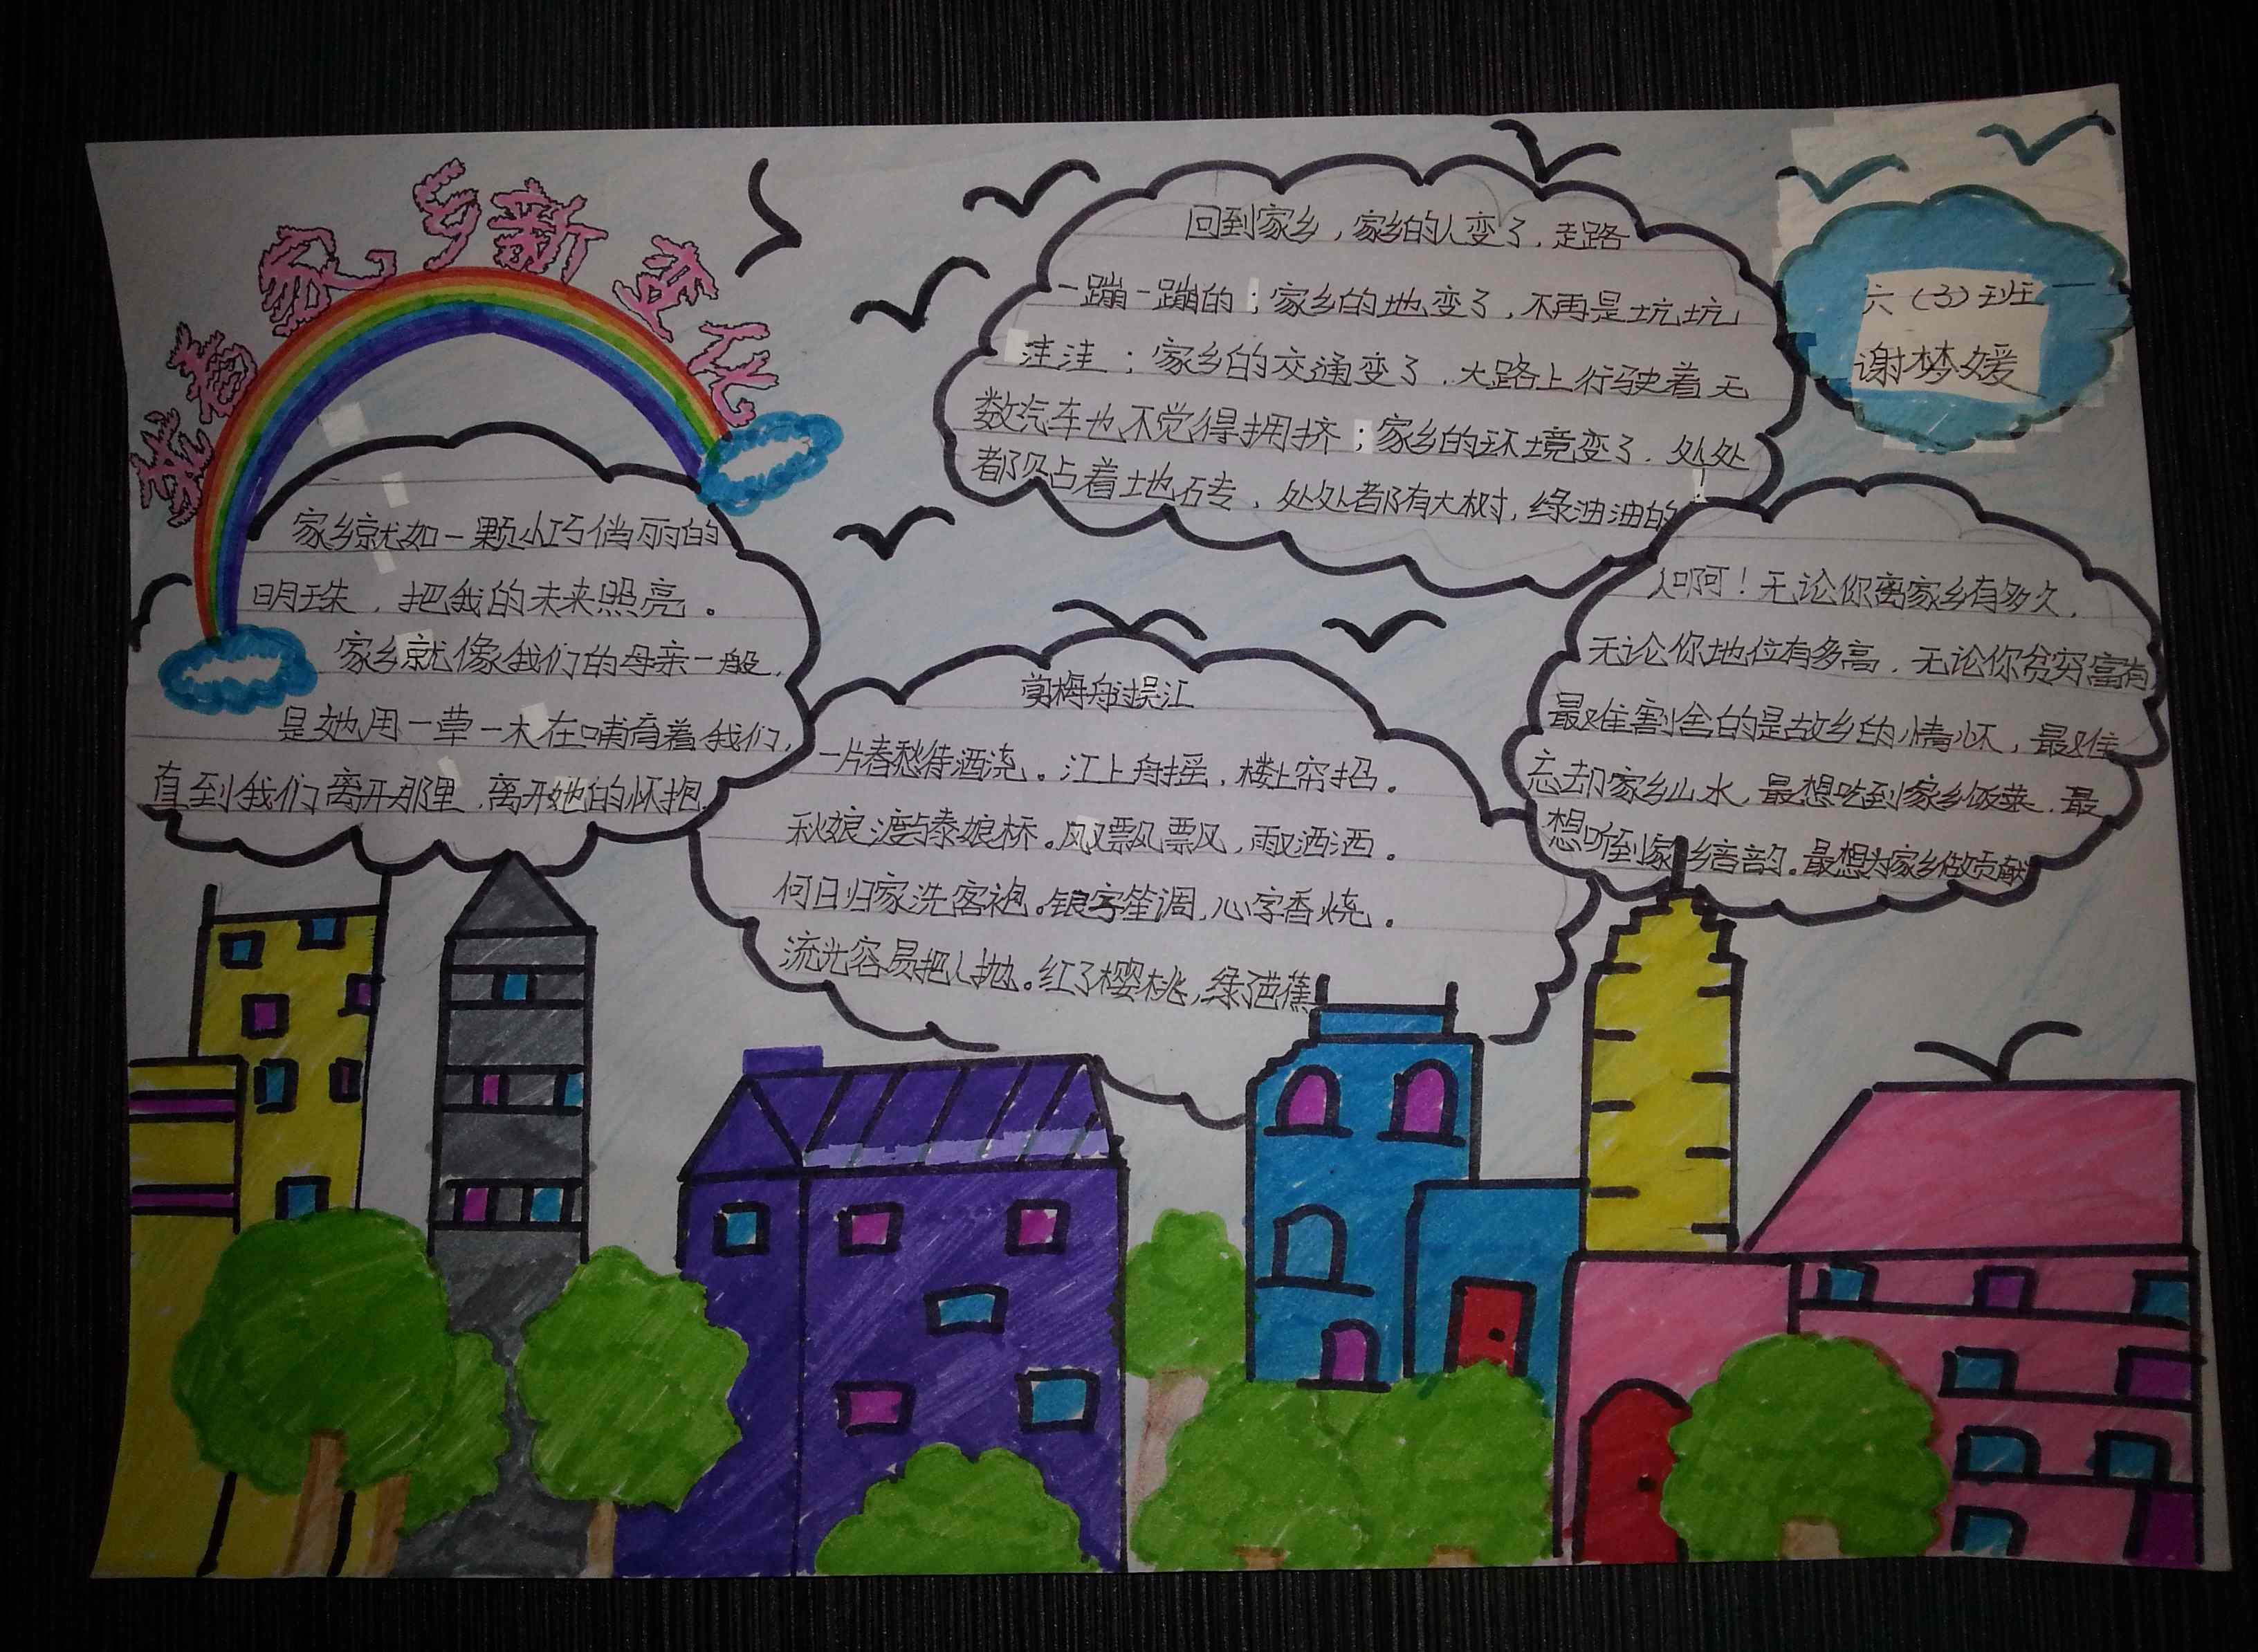 我看家乡新变化
六（3）班
谢梦媛
回到家乡，家乡的人变了，走路
一蹦一蹦的；家乡的地变了，不再是坑坑
洼洼；家乡的交通变了，大路上行驶着无
数汽车也不觉得拥挤；家乡的环境变了，处处
都贴着地砖，处处都有大树，绿油油的！
家乡就如一颗小巧俏丽的
明珠，把我的未来照亮。
家乡就像我们的母亲一般，
是她用一草一木在哺育着我们，
直到我们离开那里，离开她的怀抱。
梅舟过吴江
一片春愁待酒浇。江上舟摇，楼上帘招。
秋娘渡与泰娘桥。风又飘飘，雨又洒洒。
何日归家洗客袍。银字笙调，心字香烧。
流光容易把人抛。红了樱桃，绿了芭蕉
人啊！无论你离家乡有多久，
无论你地位有多高，无论你贫穷富有
最难割舍的是故乡的情怀，最难
忘却家乡山水，最想吃到家乡饭菜，最
想听到家乡音韵。最想为家乡做贡献